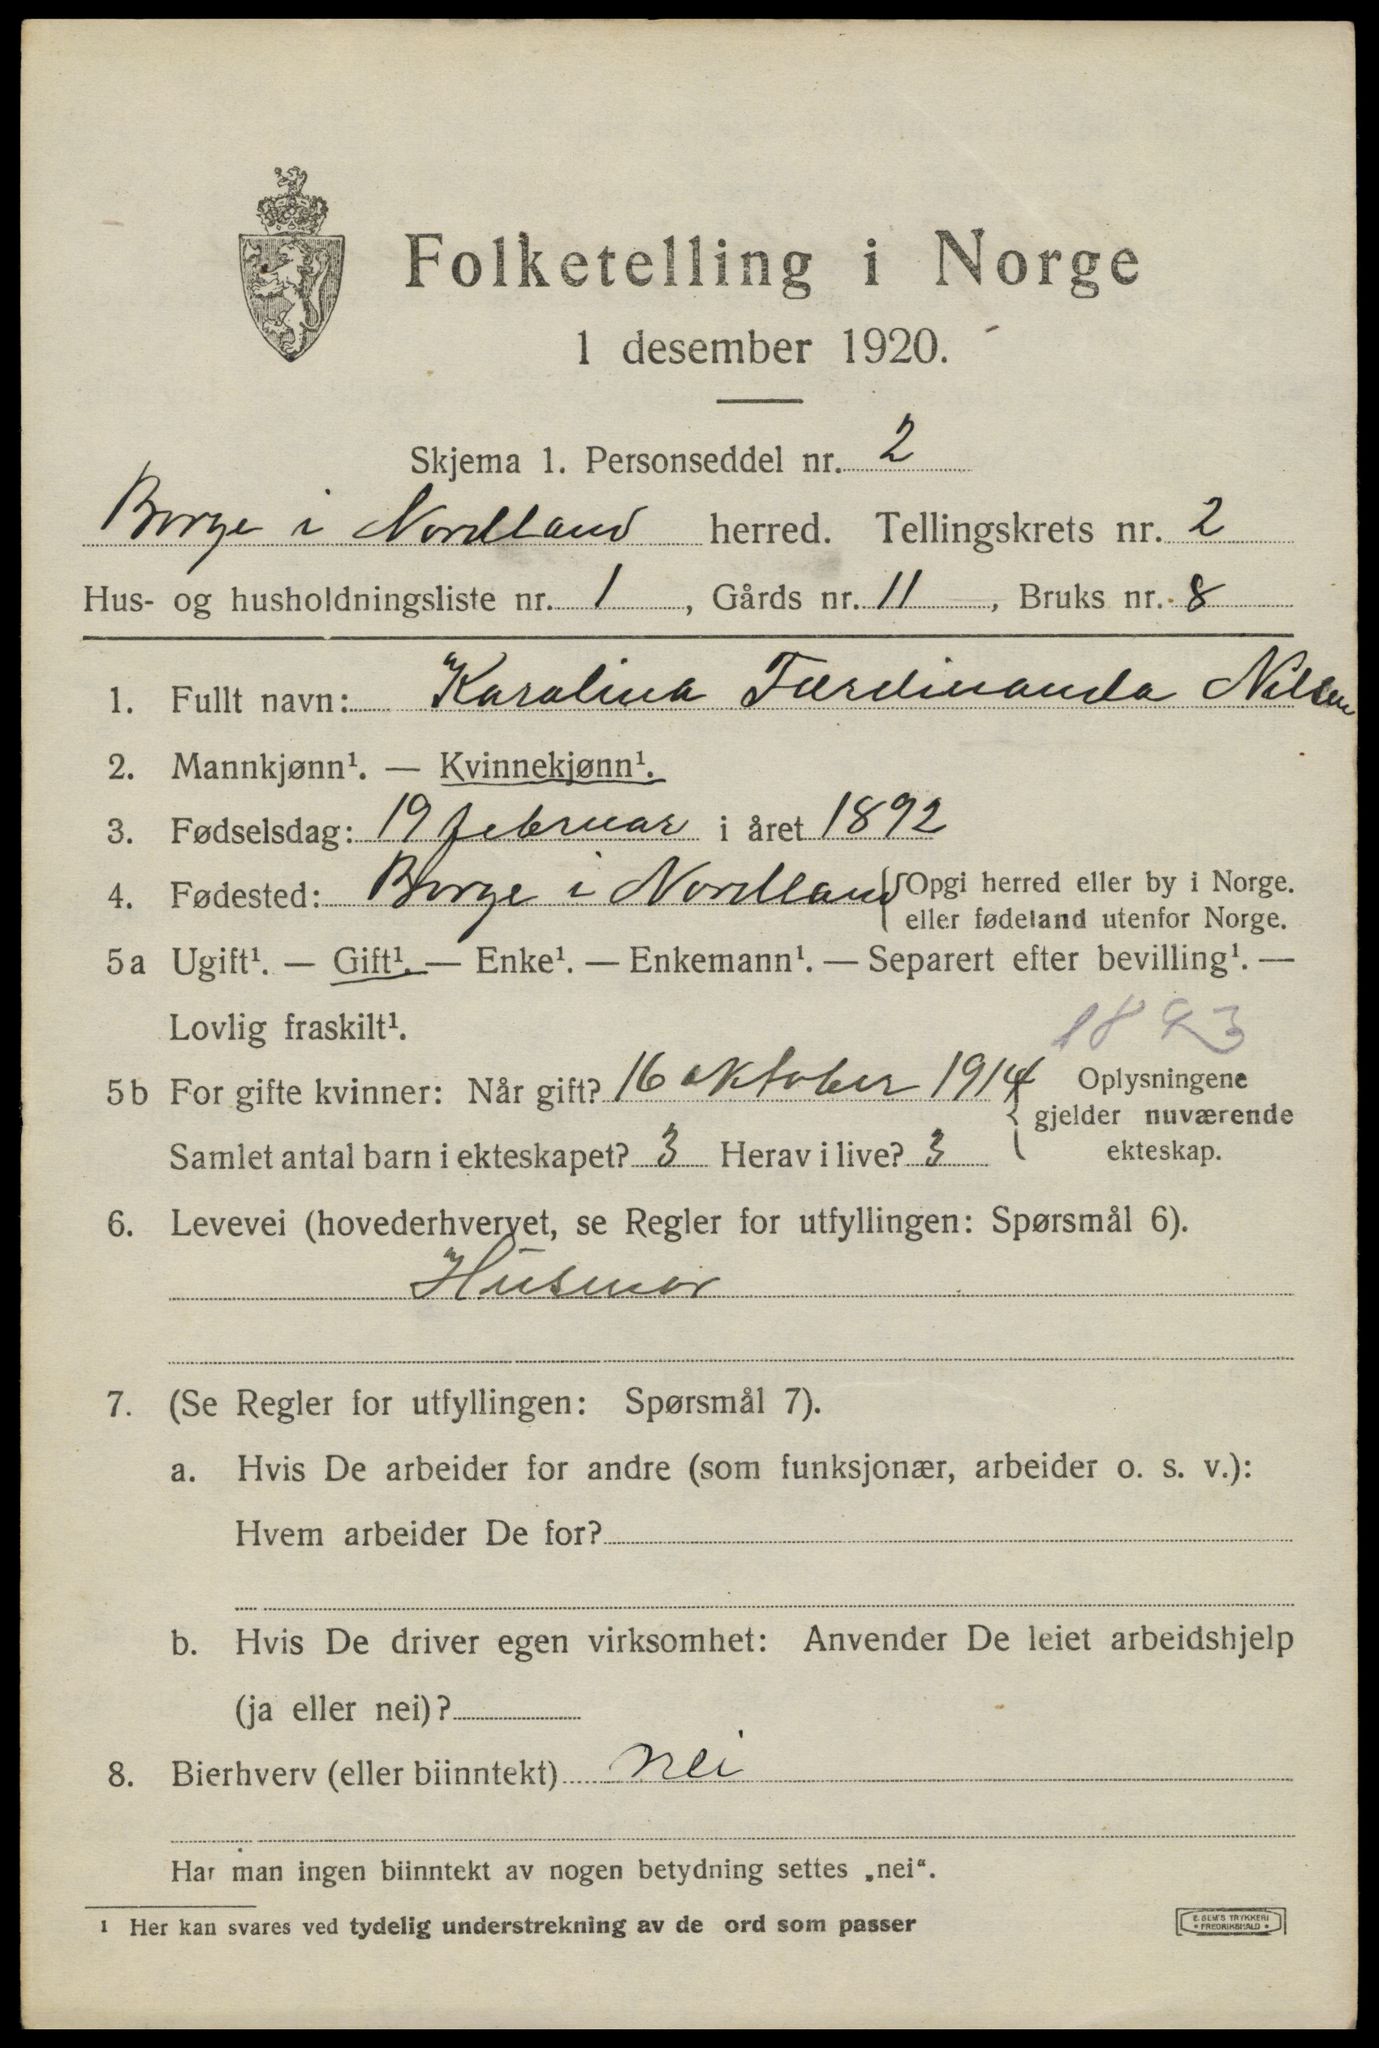 Folketelling i Norge
1 desember 1920.
Skjema 1. Personseddel nr. 2
Borge i Nordland herred. Tellingskrets nr. 2
Hus- og husholdningsliste nr. 1, Gårds nr. 11, Bruks nr. 8
1. Fullt navn: Karolina Færdinanda Nilsen
2. Mannkjønn¹. — Kvinnekjønn¹.
3. Fødselsdag: 19 februar i året 1892
4. Fødested: Borge i Nordland {Opgi herred eller by i Norge.
eller fødeland utenfor Norge.
5a Ugift¹. — Gift¹. — Enke¹. — Enkemann¹. — Separert efter bevilling¹. —
Lovlig fraskilt¹.
1893
5b For gifte kvinner: Når gift? 16 oktober 1914 { Oplysningene
gjelder nuværende
Samlet antal barn i ekteskapet? 3 Herav i live? 3 ekteskap.
6. Levevei (hovederhvervet, se Regler for utfyllingen: Spørsmål 6).
Husmor
7. (Se Regler for utfyllingen: Spørsmål 7).
a. Hvis De arbeider for andre (som funksjonær, arbeider o. s. v.):
Hvem arbeider De for?
b. Hvis De driver egen virksomhet: Anvender De leiet arbeidshjelp
(ja eller nei)?
8. Bierhverv (eller biinntekt) nei
Har man ingen biinntekt av nogen betydning settes „nei“.
¹ Her kan svares ved tydelig understrekning av de ord som passer
E. SEM'S TRYKKERI
• FREDRIKSHALD •